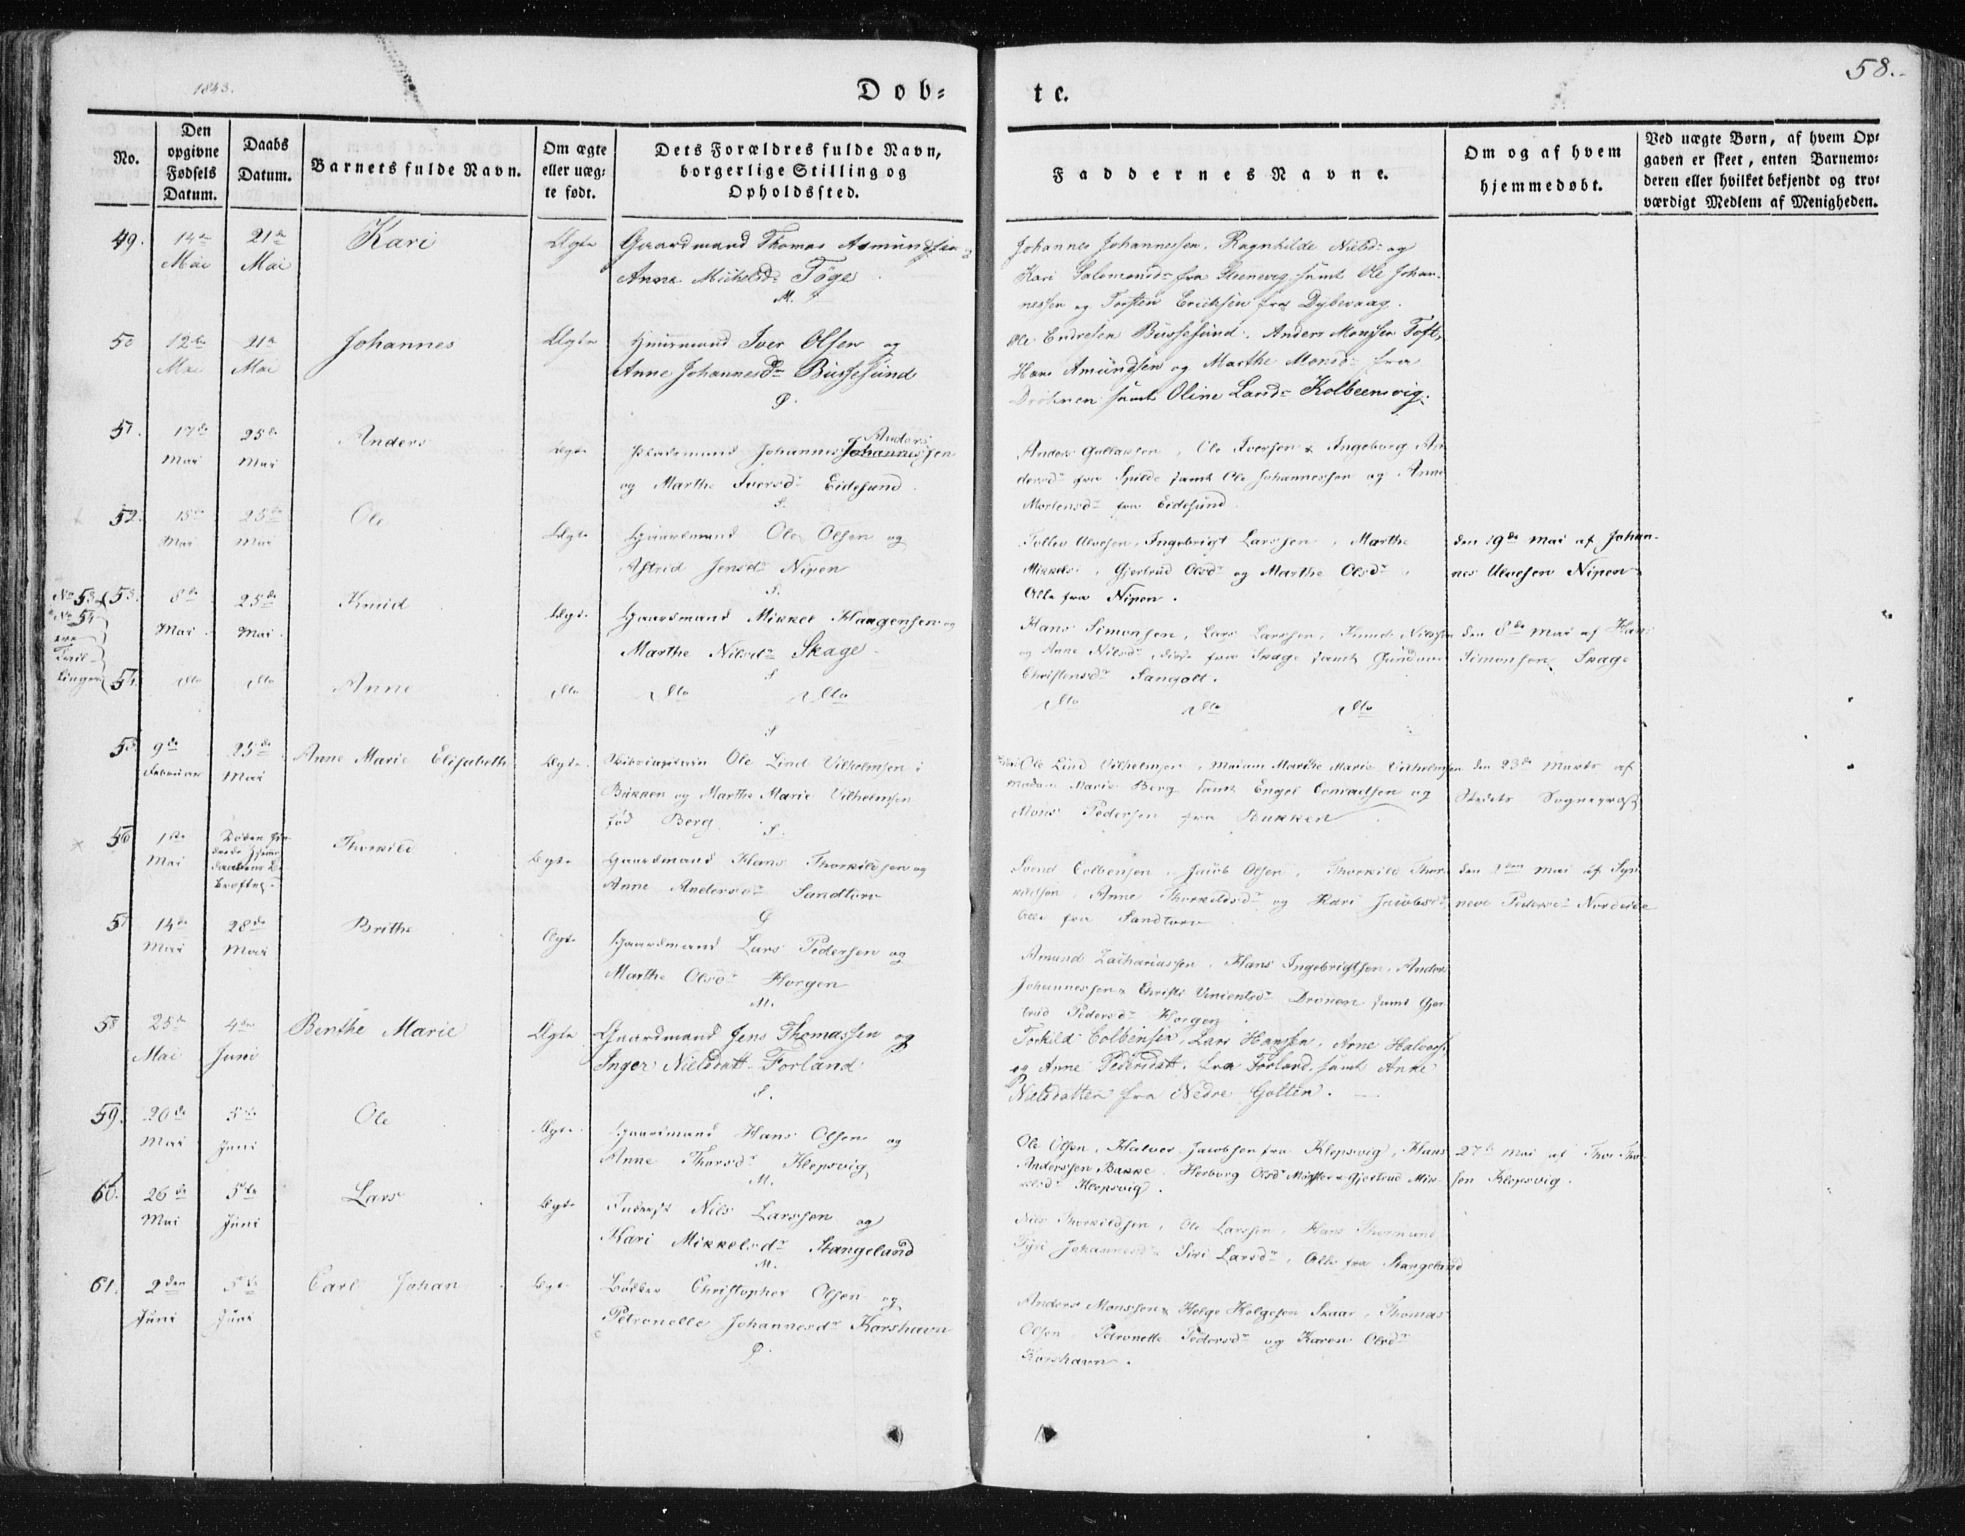 1843.
Døb-
te.
58.
No.
Den opgivne Fødsels Datum.
Daabs Datum.
Barnets fulde Navn.
Om ægte eller uægte født.
Dets Forældres fulde Navn, borgerlige Stilling og Opholdssted.
Faddernes Navne.
Om og af hvem hjemmedøbt.
Ved uægte Børn, af hvem Opgaven er skeet, enten Barnemoderen eller hvilket bekjendt og troværdigt Medlem af Menigheden.
49. 14de 21de Kari Ægte Gaardmand Thomas Asmundsen
Mai Mai Anne Mickelsdr Töge
M.
Johannes Johannessen, Ragnhilde Nielsdr og
Kari Salomonsdr fra Steenevig samt Ole Johan-
nessen og Torsten Erichsen fra Dybevaag.
50 12te 21de Johannes Ægte Huusmand Iver Olsen og
Mai Mai Anne Johannesdr Bussesund
Ole Endresen Bussesund, Anders Monsen Toft,
Hans Amundsen og Marthe Monsdr fra
Drönen samt Oline Larsdr Kolbeensvig.
51. 17de 25de Anders Ægte Johannes Johannessen
Anders
Mai Mai og Marthe Iversdr Eidesund
S.
Anders Gullaksen, Ole Iversen & Ingeborg An-
dersdr fra Spilde samt Ole Johannessen og Anne
Mortensdr fra Eidesund
52. 18de 25de Ole Ægte Gaardmand Ole Olsen og
Mai Mai Astrid Jensdr Nipen
S.
Tollev Ulvesen, Ingebrigt Larssen, Marthe
Mikkels, Gjertrud Olsdr og Marthe Olsdr
Alle fra Nipen.
den 19de Mai af Johan-
nes Ulvesen Nipen
No 53 & No 54 ere Tvil-linger
53. 8de 25de Knud Ægte Gaardmand Mikkel Haagensen og
Mai Mai Marthe Nilsdr Skage
S
Hans Simonsen, Lars Larssen, Knud Nilssen
og Anne Nilsdr, disse fra Skage samt
Christensdr Sangolt.
den 8de Mai af Hans
Simonsen Skage
54. dto dto Anne dto dto dto
S
dto dto dto
55 9de 25de Anne Marie Elisabeth Ægte Skibscapitain Ole Lind Vilhelmsen i
Februar Mai Bakken og Marthe Marie Vilhelmsen
fød Berg
S.
Ole Lind Vilhelmsen, Madam Marthe Marie Vilhelmsen
Madam Marie Berg samt Engel Conradsen og
Mons Pedersen fra Bakken
den 23de Marts af
Stedets Sognepræst
56 1ste Thorkild Ægte Gaardmand Hans Thorkildsen og
Mai Anne Andersdr Sandtorv
Svend Colbensen, Jacob Olsen, Thorkild Thor-
kildsen, Anne Thorkildsdr og Kari Jacobsdr
Alle fra Sandtorv
den Mai af Syn-
neve Pedersdr Nordeide
57 14de 28de Brithe Ægte Gaardmand Lars Pedersen og
Mai Mai Marthe Olsdr Horgen
M.
Amund Zachariassen, Hans Ingebrigtsen, Anders
Johannessen & Christi Vincentsdr Dronen samt Gjer-
trud Pedersdr Horgen
58 25de 4de Benthe Marie Ægte Gaardmand Jens Thomassen og
Mai Juni Inger Nielsdatt. Forland
S.
Torkild Colbensen, Lars Hansen, Arne Halvors.
og Anne Pedersdatt. fra Forland, samt Anne
Nielsdatter fra Nedre Golten.
59. 20de 5te Ole Ægte Gaardmand Hans Olsen og
Mai Juni Anne Thorsdr Klepsvig
M.
Ole Olsen, Halvor Jacobsen fra Klepsvig, Hans
Anderssen Bakke, Herborg Olsdr & Gjertrud Mik-
kelsdr Klepsvig.
27de Mai af Thor Tho-
sen Klepsvig.
60. 26de 5te Lars Ægte Inderst Nils Larssen og
Mai Juni Kari Mikkelsdr Stangeland
M.
Nils Thorkildsen, Ole Larssen, Hans
Johannesdr Siri Larsdr, Alle fra Stangeland
61. 2den 5te Carl Johan Ægte Bødker Christopher Olsen og
Juni Juni Petronelle Johannesdr Korshavn
Anders Monssen & Helge Helgesen Skaar, Thomas
Olsen, Petronelle Pedersdr og Karen Olsdr
Korshavn.